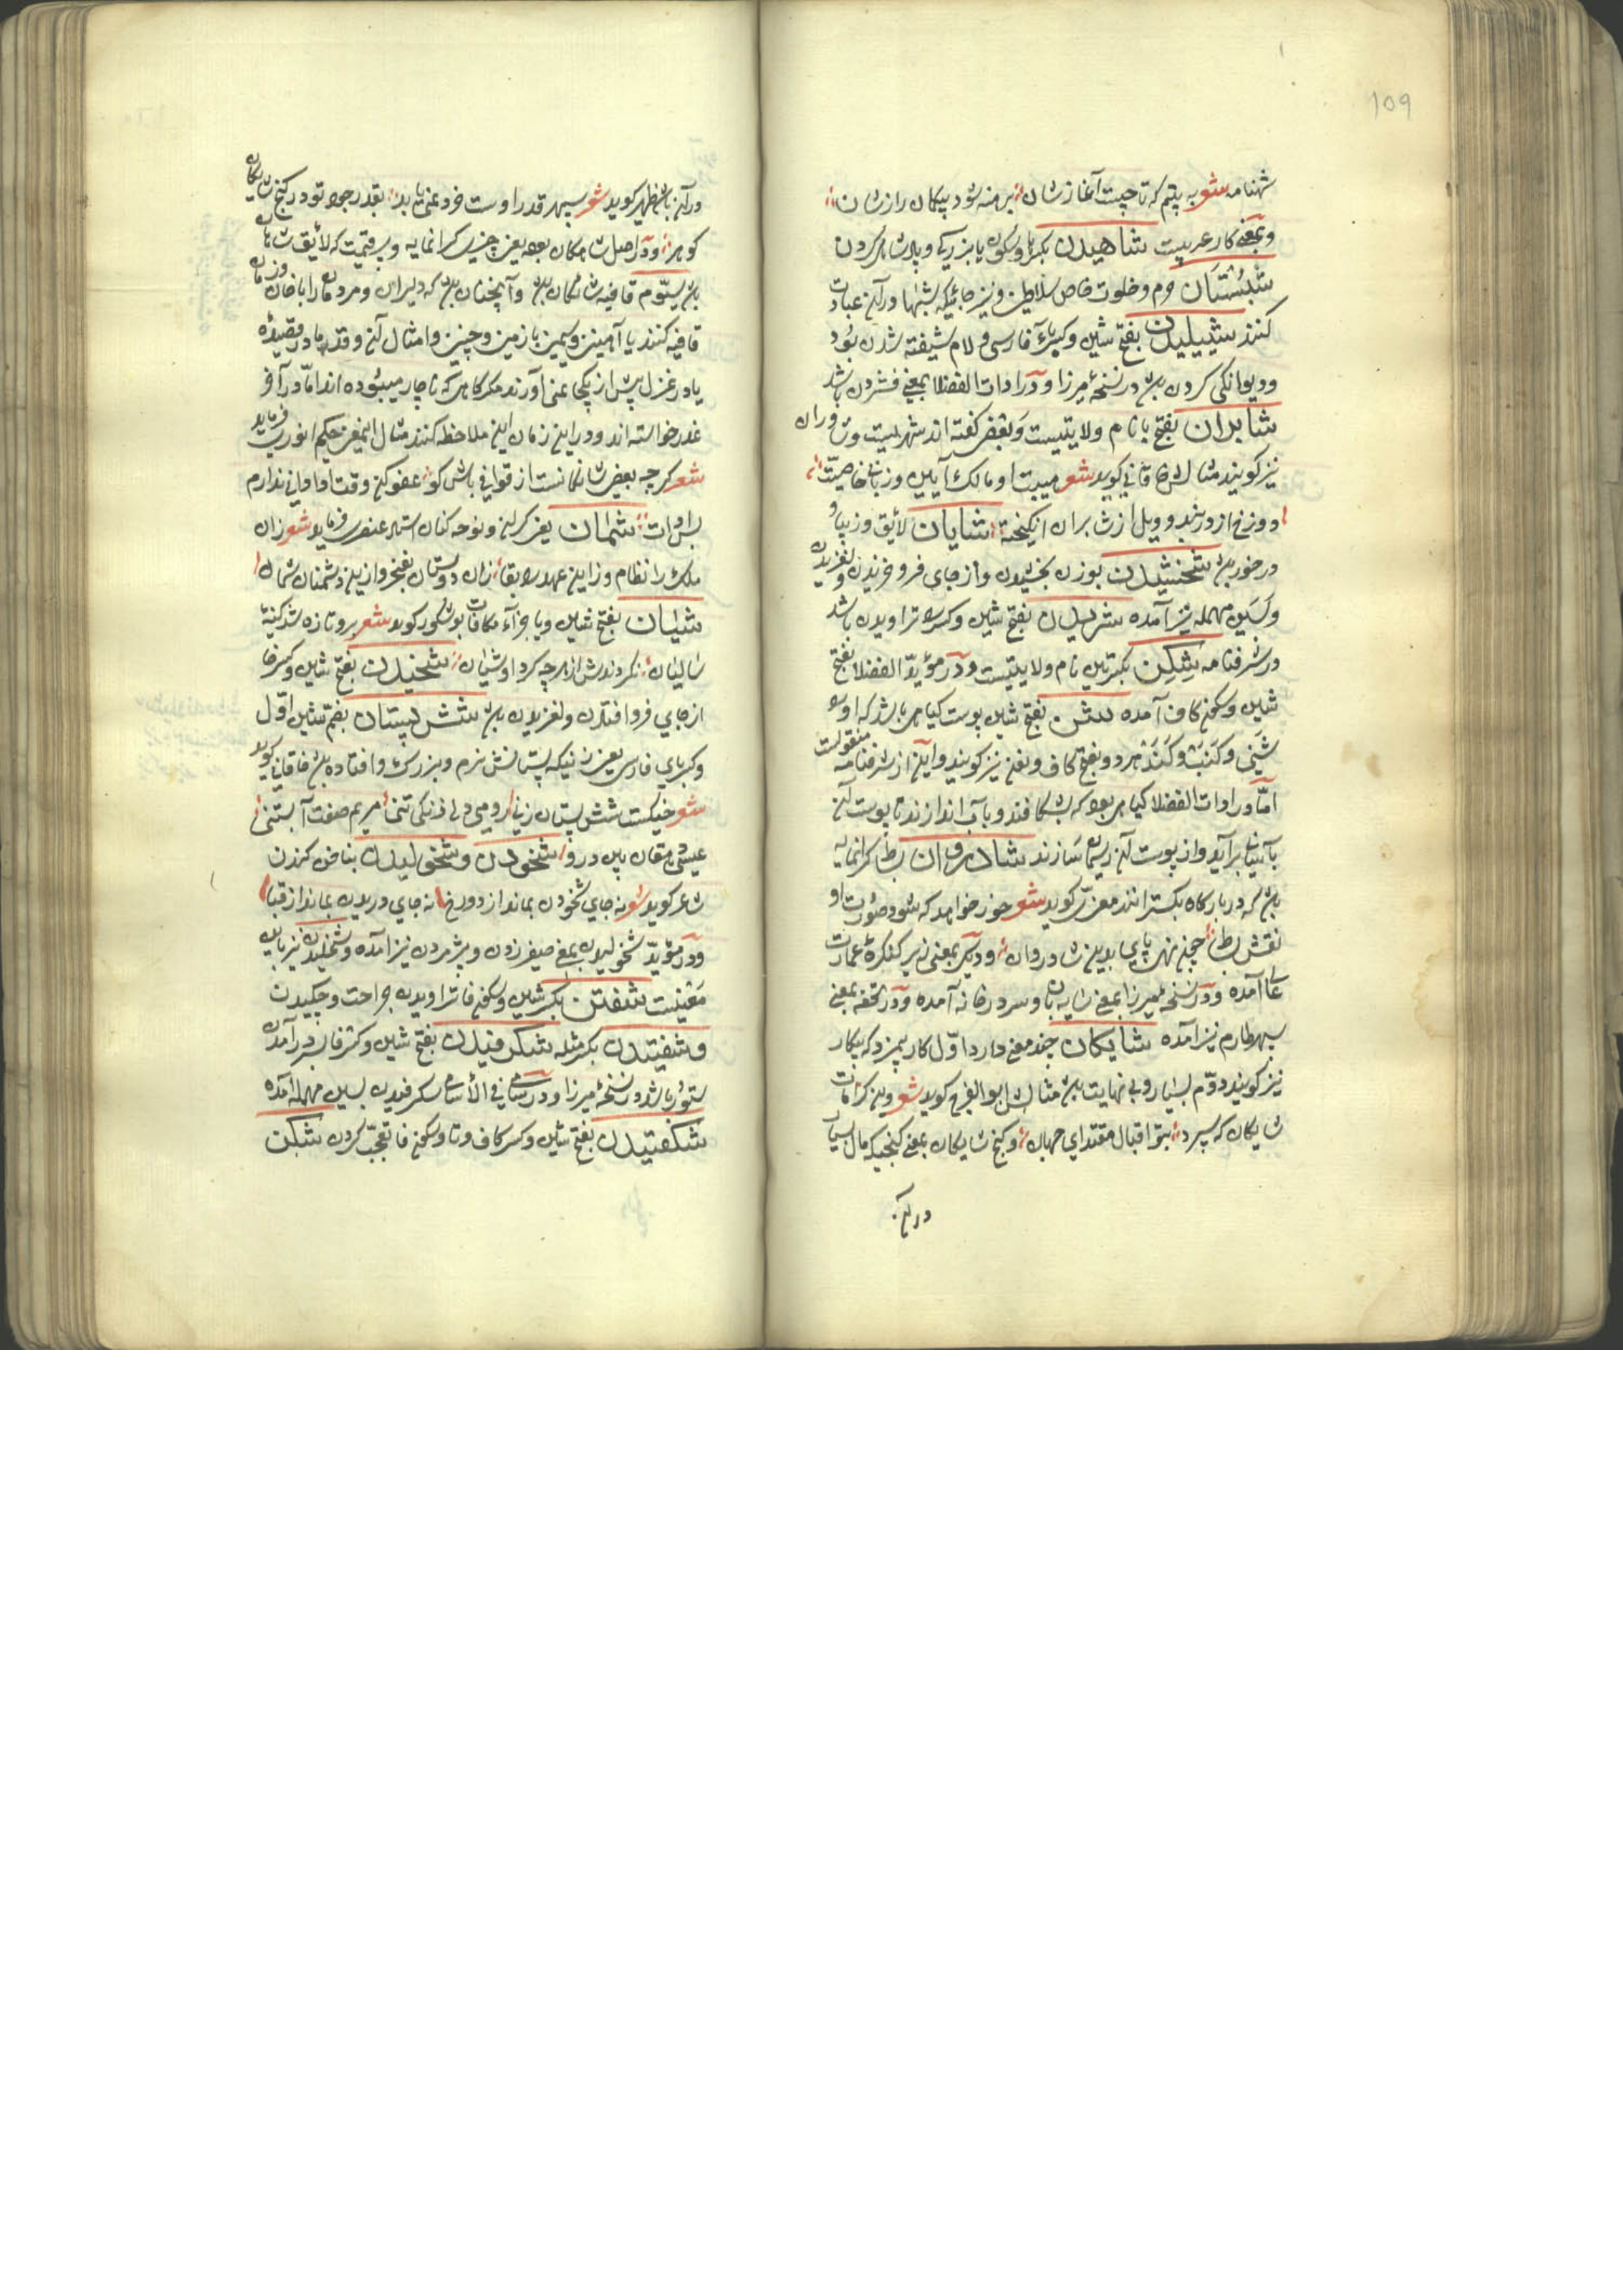 109
شهنامه شعر به پتیم که تا چیست آغاز شان برهنه شود بیکمان راز شان
وبمعنی کار عربیست شاهیدن بکر ها وسکون یا بزرکی وپادشاهی کردن
شبستان حرم وخلوت خاص سلاطین ونیز جائیکه شبها در آن عبادت
کنند شیبیلیدن بفتح شین وکسر یای فارسی ولام شیفته شدن بود
ودیوانکی کردن باشد در نسخه میرزا ودر ادات الفضلا بمعنی فشردن باشد
شابران بفتح با نام ولایتیست وبعضی کفته اند شهریست وشاوران
نیز کویند مثالش خاقانی کوید شعر هیبت او مالک آیین وزبانی خاصیت
دوزخ از دربند وویل از شابران انکیخته شایان لائق وزیبا و
درخور باشد شخشیدن بوزن بخشیدن واز جای فرو خزیدن ولغزیدن
وبسین مهمله نیز آمده شریدن بفتح شین وکسر را تراویدن باشد
در شرفنامه شکن بکسرتین نام ولایتیست ودر مؤید الفضلا بفتح
شین وسکون کاف آمده شن بفتح شین پوست کیاهی باشد که او را
شنی وکنب وکنف هر دو بفتح کاف ونون نیز کویند واین از شرفنامه منقولست
اما در ادات الفضلا کیاهی بود که بشکافند وبآب اندازند تا پوست آن
بآسانی برآید واز پوست آن ریسمان سازند شادروان بساط کرانمایه
باشد که در بارکاه بکسترانند معزی کوید شعر حور خواهد که شود صورت او
نقش بساط چون نهی پای بدین شادروان ودیکر بمعنی زیر کنکره عمارت
عالی آمده ودر نسخه میرزا بمعنی سایه بان وسردر خانه آمده ودر تحفه بمعنی
سپهر طارم نیز آمده شایکان چند معنی دارد اول کار بیمزد که بیکار
نیز کویند دوم بسیار وبی نهایت باشد مثالش ابو الفرج کوید شعر وین کرامات
شایکان که سپرد بتو اقبال مقتدای جهان وکنج شایکان بمعنی کنجیکه مال بسیار
در آن
در آن باشد ظهیر کوید شعر سپهر قدر او ست خرد غنی یابد بقدر جود تو در کنج شایکان
کوهر ودر اصل شاهکان بوده یعنی چیزی کرانمایه وبیقیمت که لائق شاهان
باشد سیوم قافیه شایکان باشد وآنچنان باشد که دلیران ومردمان را با خان وزمان
قافیه کنند یا آهنین وسیمین با زمین وچنین وامثال آن وقدما در قصیده
یا در غزل پیش از یکجا نمی آورند مکر کاهی که ناچار میبوده اند اما در آخر
عذر خواسته اند ودر این زمان این ملاحظه کنند مثال اینمعنی حکیم انوری فرماید
شعر کرچه بعضی شایکانست از قوافی باش کو عفو کن وقت ادا وانی ندارم
بس ادات شمان یعنی کریان ونوحه کنان استاد عنصری فرماید شعر زان
ملک را نظام وز این عهد را بقا زان دوستان بفخر واز این دشمنان شمان
شیان بفتح شین ویا جزا ومکافات بو شکور کوید شعر برو تازه شد کینۀ
سالیان نکردندش از هرچه کرد او شیان شخیدن بفتح شین وکسر خا
از جای فرو افتادن ولغزیدن باشد شش پستان بضم شین اول
وکسر بای فارسی یعنی زنیکه پستانش نرم وبزرک وافتاده باشد خاقانی کوید
شعر خیکست شش پستان زنی رومی دل زنکی تنی مریم صفت آبستنی
عیسی دهقان بین درو شخودن وشخولیدن بناخن کندن
شاعر کوید شعر نه جای شخودن بماند از دو رخ نه جای دریدن بماند از قبا
ودر مؤید شخولیدن بمعنی صفیر زدن وپژمردن نیز آمده وشخلیدن نیز باین
معنیست شفتن بکسر شین وسکون فا تراویدن جراحت وچکیدن
وشفتیدن بکسر مثله شکرفیدن بفتح شین وکسر فا سر در آمدن
ستور باشد در نسخه میرزا ودر سامی فی الأسامی سکرفیدن بسین مهمله آمده
شکفتیدن بفتح شین وکسر کاف وتا وسکون فا تعجب کردن شبکن